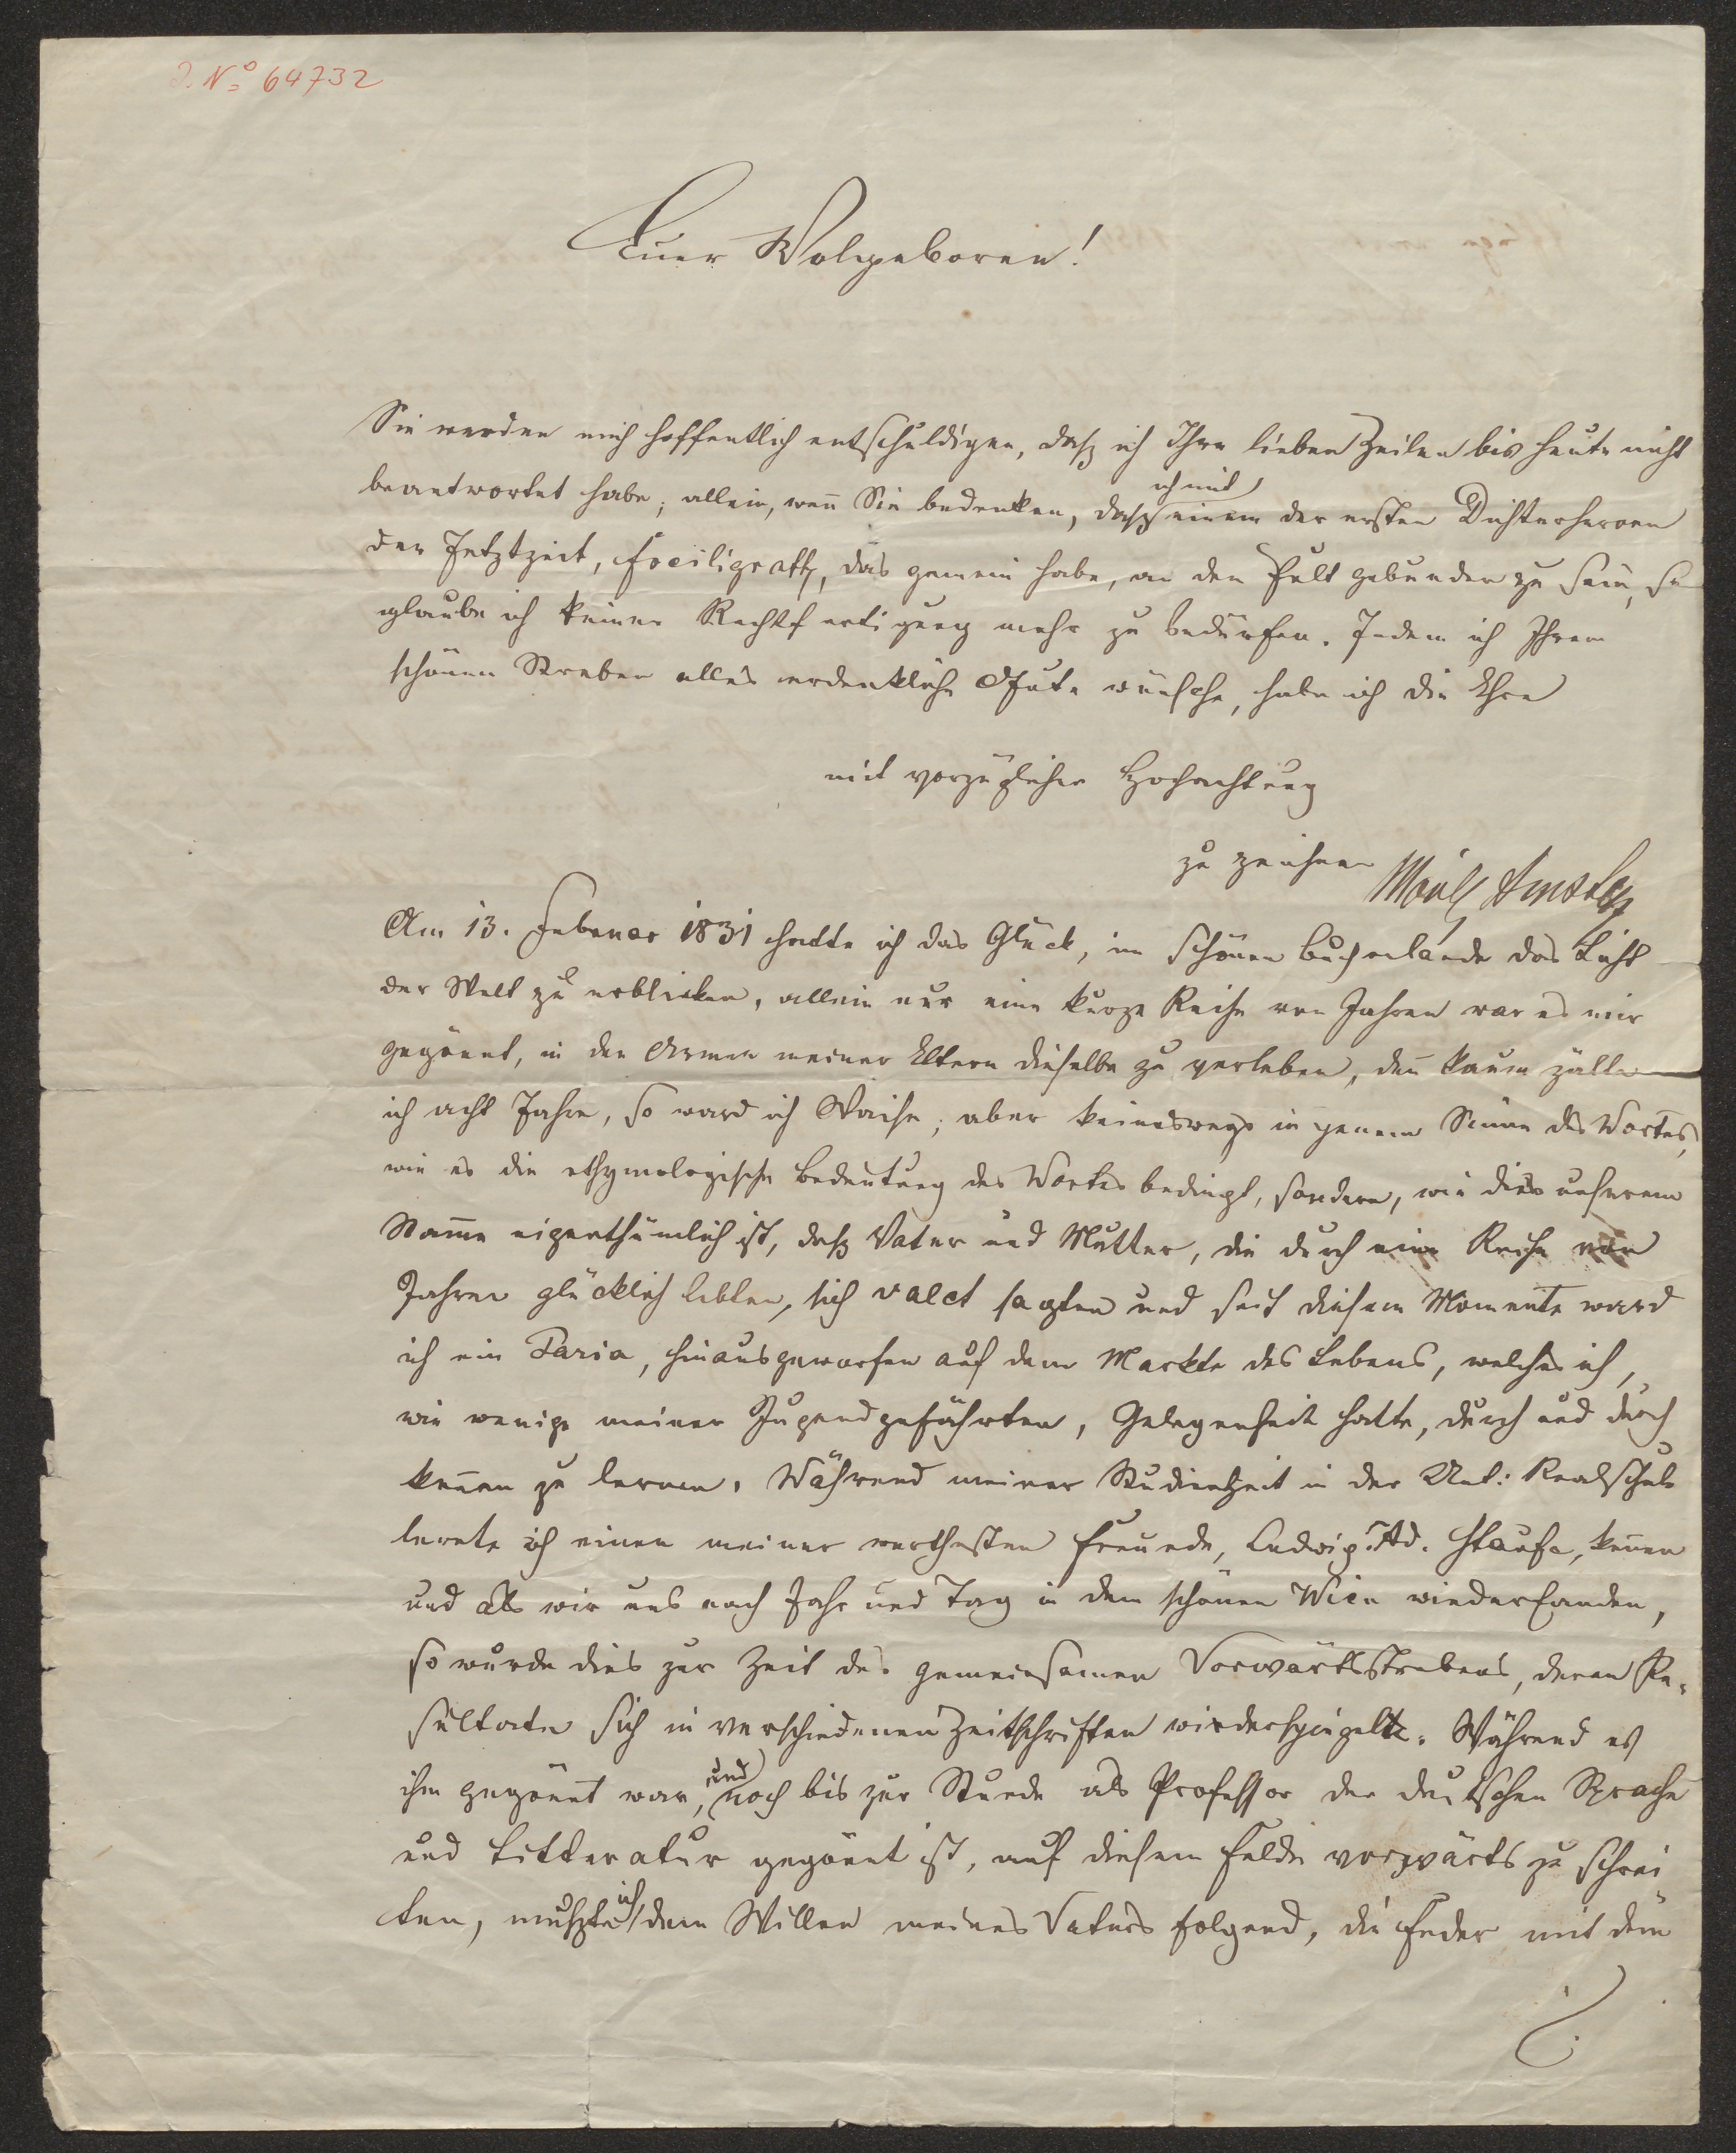 I. No 64732
Euer Wolgeboren!
Sie werden mich hoffentlich entschuldigen, daß ich Ihre lieben Zeilen bis heute nicht
beantwortet habe; allein, wen̄ Sie bedenken, daß ich mit einem der ersten Dichterheroen
der Jetztzeit, Freiligrath, das gemein habe, an den Pult gebunden zu sein, so
glaube ich keiner Rechtfertigung mehr zu bedürfen. Indem ich Ihrem
schönen Streben alles erdenkliche Gute wünsche, habe ich die Ehre
mit vorzüglicher Hochachtung
zu zeichnen Moriz Amster
Am 13. Februar 1831 hatte ich das Glück, im schönen Buchenlande das Licht
der Welt zu erblicken, allein nur eine kurze Reihe von Jahren war es mir
gegönnt, in den Armen meiner Eltern dieselbe zu verleben, den̄ kaum zälte
ich acht Jahre, so ward ich Waise; aber keineswegs in jenem Sinne des Wortes,
wie es die ethymologische Bedeutung des Wortes bedingt, sondern, wie dies unserem
Stam̄e eigenthümlich ist, daß Vater und Mutter, die durch eine Reihe von
Jahren glücklich lebten, sich valet sagten und seit diesem Momente ward
ich ein Paria, hinausgeworfen auf dem Markte des Lebens, welches ich,
wie wenige meiner Jugendgefährten, Gelegenheit hatte, durch und durch
ken̄en zu lernen. Während meiner Studienzeit in der Unt: Realschule
lernte ich einen meiner werthesten Freunde, Ludwig Ad. Staufe, ken̄en
und als wir uns nach Jahr und Tag in dem schönen Wien wiederfanden,
so wurde dies zur Zeit des gemeinsamen Vorwärtsstrebens, deren Re-
sultate sich in verschiedenen Zeitschriften wiederspiegelte. Während es
ihm gegönnt war, und noch bis zur Stunde als Professor der deutschen Sprache
und Litteratur gegönnt ist, auf diesem Felde vorwärts zu schrei
ten, mußte ich dem Willen meines Vaters folgend, die Feder mit dem